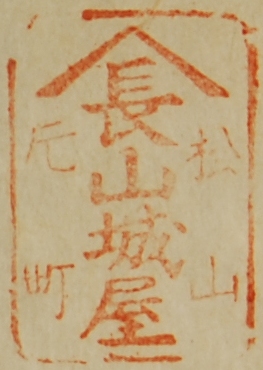 松山
長山城屋
元町